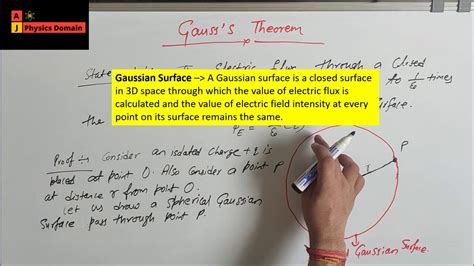 A
J
Physics Domain
Gauss's Theorem
Electric flux through a Closed
to 1/ε₀ times
the
Surface.
Gaussian Surface –> A Gaussian surface is a closed surface
in 3D space through which the value of electric flux is
calculated and the value of electric field intensity at every
point on its surface remains the same.
Proof :- Consider an isolated charge +q is
placed at point O. Also consider a point P
at distance r from point O.
Let us draw a spherical Gaussian
Surface pass through point P.
P
r
Gaussian Surface